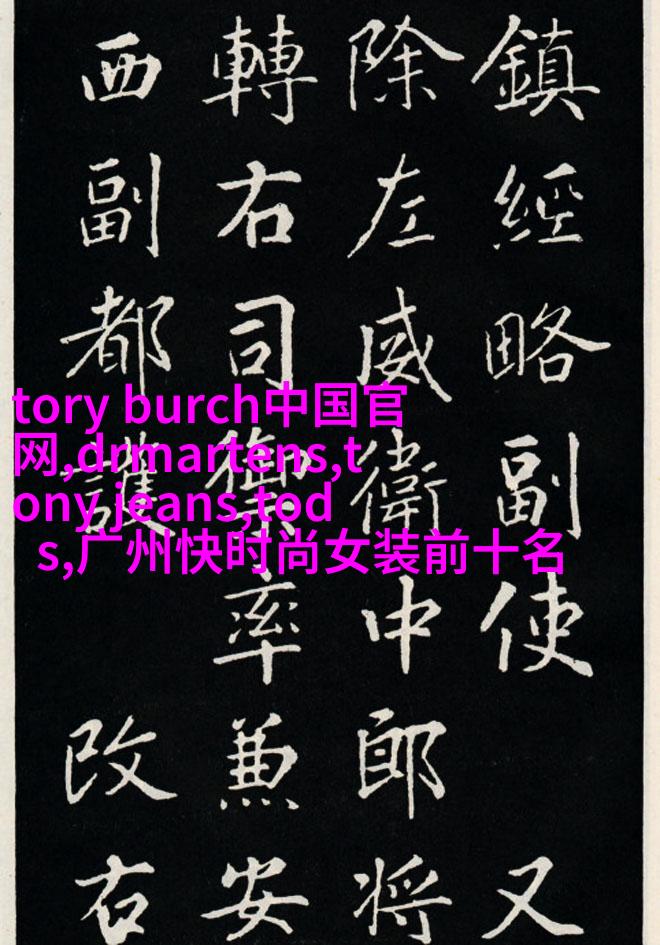 鎮經略副使 又
除左威衛中郎将
轉右司禦率兼安
西副都護 改右
tory burch中国官
网,drmartens,t
ony jeans,tod
s,广州快时尚女装前十名